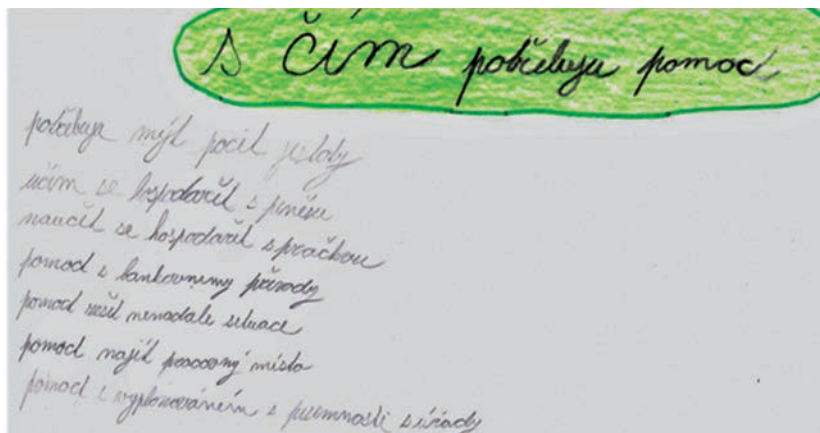 s čím potřebuju pomoc
potřebuju mýt pocit jistoty
učím se hospodařit s peněze
naučit se hospodařit s pračkou
pomoc s bankovnimy převody
pomoc řešit nenadále situace
pomoc najít pracovný místo
pomoc s vyplnováním s písemnosti s úřady